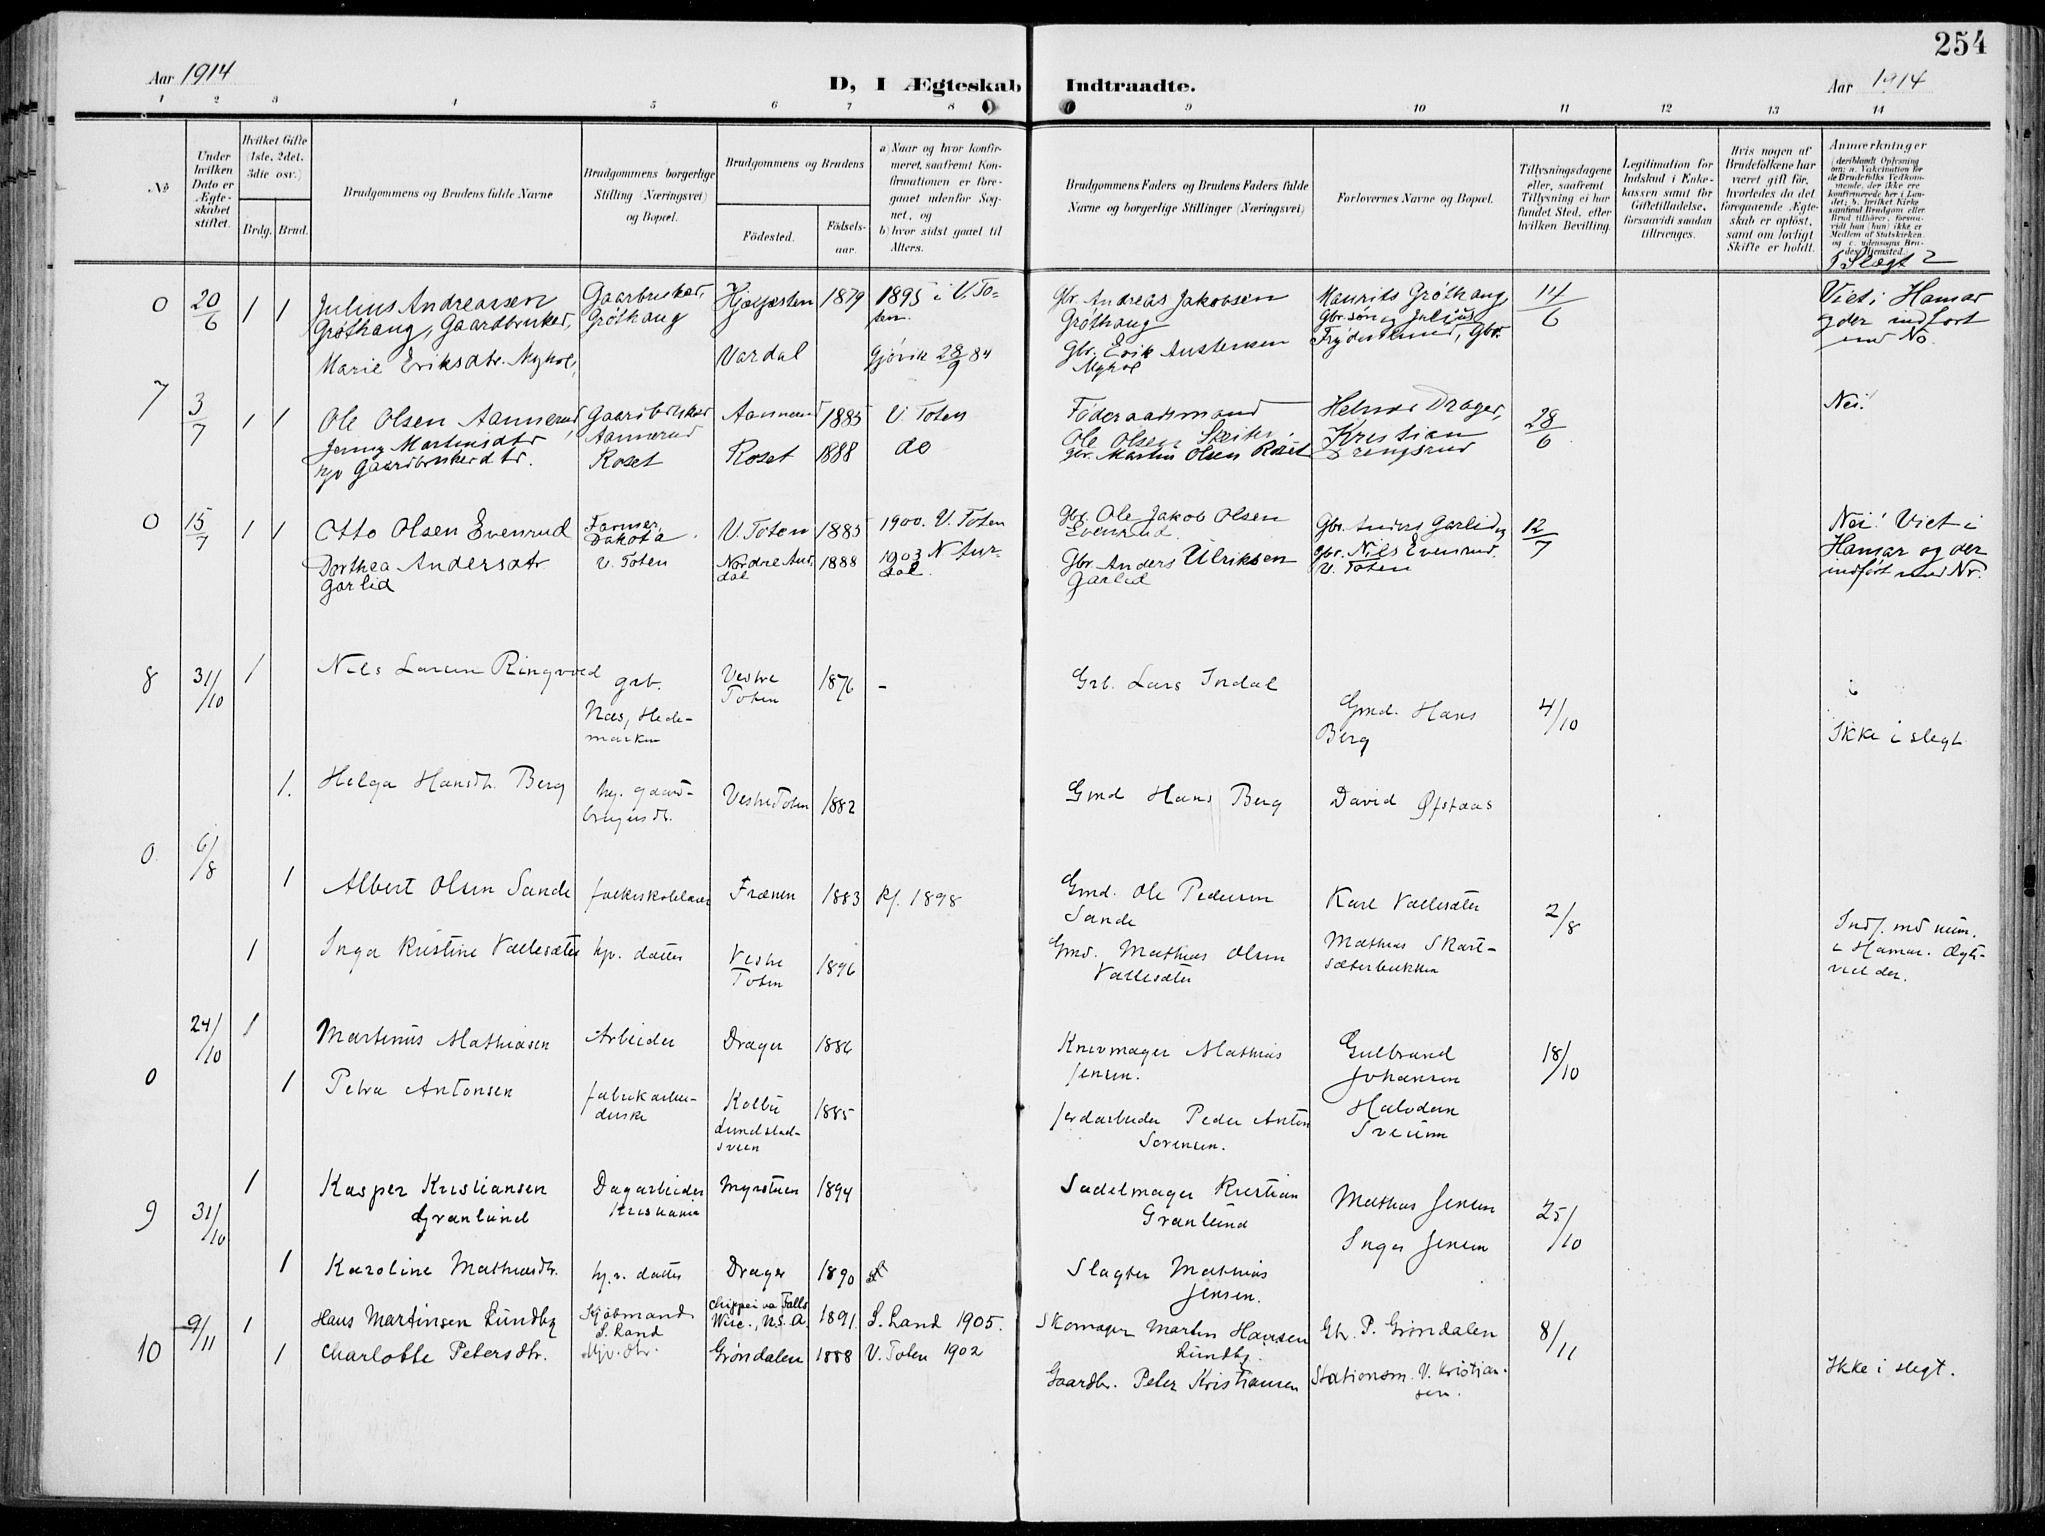 254
Aar 1914
D, I Ægteskab Indtraadte.
Aar 1914
1 2 3 4 5 6 7 8 9 10 11 12 13 14
No
Under hvilken Dato er Ægteskabet stiftet.
Hvilket Gifte (1ste, 2det, 3die osv.)
Brdg. Brud.
Brudgommens og Brudens fulde Navne
Brudgommens borgerlige Stilling (Næringsvei) og Bopæl.
Brudgommens og Brudens
Fødested.
Fødselsaar.
a) Naar og hvor konfirmeret, saafremt Konfirmationen er foregaaet udenfor Sognet, og
b) hvor sidst gaaet til Alters.
Brudgommens Faders og Brudens Faders fulde Navne og borgerlige Stillinger (Næringsvei)
Forlovernes Navne og Bopæl.
Tillysningsdagene eller, saafremt Tillysning ei har fundet Sted, efter hvilken Bevilling.
Legitimation for Indskud i Enkekassen samt for Giftetilladelse, forsaavidt saadan tiltrænges.
Hvis nogen af Brudefolkene har været gift før, hvorledes da det foregaaende Ægteskab er opløst, samt om lovligt Skifte er holdt.
Anmærkninger
I Slægt?
0 20/6 1 1 Julius Andreassen Gaarbruker, Hjelpesten 1879 1895 i V. To-
Grøthaug, Gaardbruker, Grøthaug ten.
Gbr. Andreas Jakobsen Maurits Grøthaug, 14/6 Viet i Hamar
Grøthaug Gbr. søn og Julius og der indført
Marie Eriksdtr. Myhol, Vardal Gjøvik 28/9 84
Gbr. Erik Austensen Frydenlund, Gbr. med No.
Myhol
7 3/7 1 1 Ole Olsen Aannerud, Gaardbruker Aannerud 1885 V. Toten
Aannerud
Føderaadsmand Helmer Drager, 28/6 Nei!
Ole Olsen Kristian
Jenny Martinsdtr Roset Roset 1888 do
hjv Gaardbrukerdtr.
gbr. Martin Olsen Roset Drengsrud
0 15/7 1 1 Otto Olsen Evenrud Farmer, V. Toten 1885 1900. V. Toten
Dakota.
Gbr. Ole Jakob Olsen Gbr. Anders Garlid og 12/7 Nei! Viet i
Evenrud. gbr. Nils Evenrud, Hamar og der
Dorthea Andersdtr V. Toten Nordre Aur- 1888 1903 N. Aur-
Garlid dal dal.
Gbr Anders Ulriksen V. Toten indført med Nr.
Garlid
8 31/10 1 Nils Larsen Ringvold grb. Vestre 1876 -
Næs, Hede- Toten
marken
Grb. Lars Indal Gmd. Hans 4/10
Berg Ikke i slegt
1. Helga Hansdt. Berg hj. gaard- Vestre Toten 1882
brugersdt.
Gmd Hans Berg David Øfstaas
0. 6/8
1 Albert Olsen Sande folkeskolelærer Frænen 1883 Kf. 1898
Gmd. Ole Pedersen Karl Vallesæter 2/8
Sande Indf. md num.
1 Inga Kristine Vallesæter hjv. datter Vestre 1896
Toten
Gmd. Mathias Olsen Mathias Skart- i Hamar. Ægte-
Vallesæter sæterbakken viet der.
24/10 1 Martinus Mathiasen Arbeider Drager 1886
Knivmager Mathias Gulbrand 18/10
Jensen. Johansen
0 1 Petra Antonsen fabrikarbei- Kolbu 1885
derske Lundstad-
sveen
Jordarbeider Peder Anton Halvdan
Sørensen. Sveum
9 31/10 1 Kasper Kristiansen Dagarbeider Myrstuen 1894
Granlund Kristiania
Sadelmager Kristian Mathias Jensen 25/10
Granlund Inger Jensen
1 Karoline Mathiasdt. hjv. datter Drager 1890
Slagter Mathias
Jensen.
10 9/11 1 Hans Martinsen Lundby Kjøbmand Chippeiva Falls 1891. S. Land 1905.
S. Land Wisc., U.S.A.
Skomager Martin Hansen Gbr. P. Grøndalen 8/11
Lundby.
1 Charlotte Petersdtr. Hjv. dtr. Grøndalen 1888 V. Toten 1902
Gaardbr. Peter Kristiansen Stationsm. V. Kristian- Ikke i slegt.
sen.